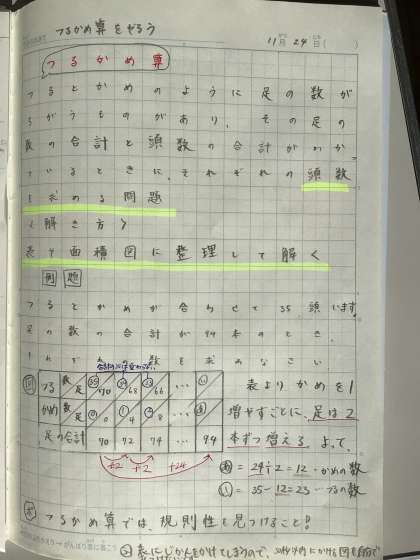 つるかめ算をやろう
11月24日( )
つるかめ算
つるとかめのように足の数が
ちがうものがあり、その足の
数の合計と頭数の合計がわか
っているときに、それぞれの頭数
を求める問題
〈解き方〉
表や面積図に整理して解く
例題
つるとかめが合わせて35頭います。
足の数の合計が94本のとき、
それぞれの数を求めなさい
つる 頭 足 35 70 34 68 33 66 …
かめ 頭 足 0 0 1 4 2 8 …
足の合計 70 72 74 … 94
+2 +2 +24
表よりかめを1
増やすごとに、足は2
本ずつ増える。よって、
あ = 24÷2=12…かめの数
い = 35-12=23…つるの数
つるかめ算では、規則性を見つけること!